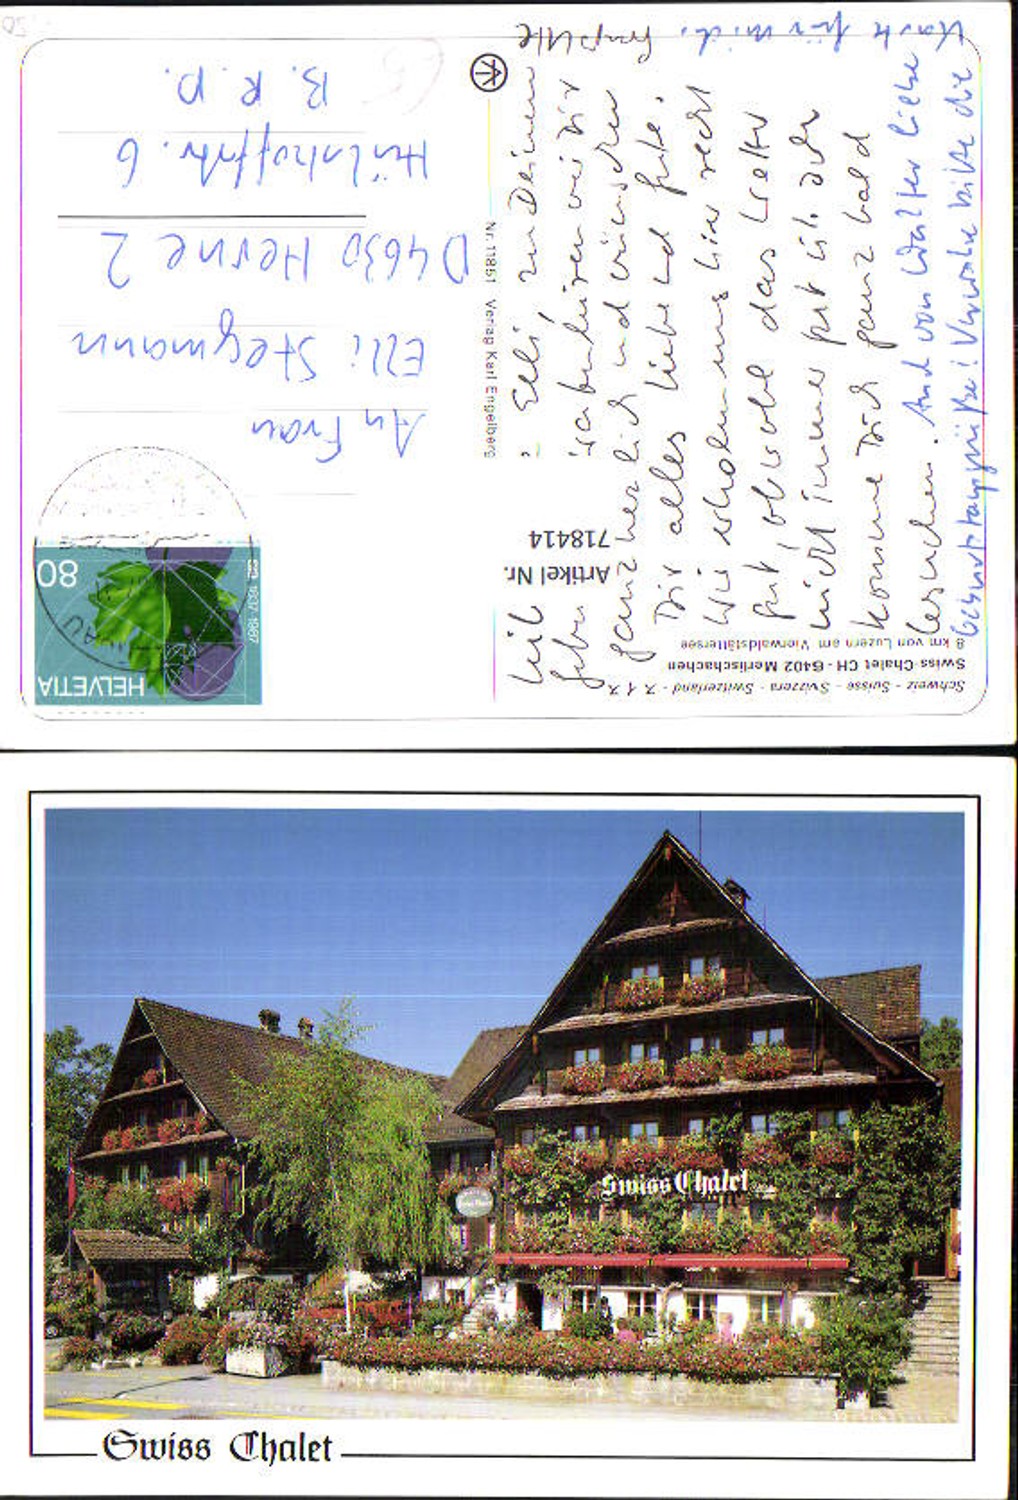 Schweiz - Suisse - Svizzera - Switzerland -
Swiss-Chalet CH - 6402 Merlischachen
8 km von Luzern am Vierwaldstättersee
Artikel Nr.
718414
Elli, zu Deinem
wir Dir
ganz herzlich und wünschen
Dir alles Liebe und Gute.
Wir erholen uns hier recht
gut, obwohl das Wetter
nicht immer gut ist. Ich
komme Dich ganz bald
besuchen. Und von Walter liebe
Geburtstagsgrüße! Verwahre bitte die
Karte für mich. Ulle
Nr. 11851 Verlag Karl Engelberg
HELVETIA
80
1937 1987
An Frau
Elli Stegmann
D 4630 Herne 2
Hülshoffstr. 6
B. R. D.
Swiss Chalet
Swiss Chalet